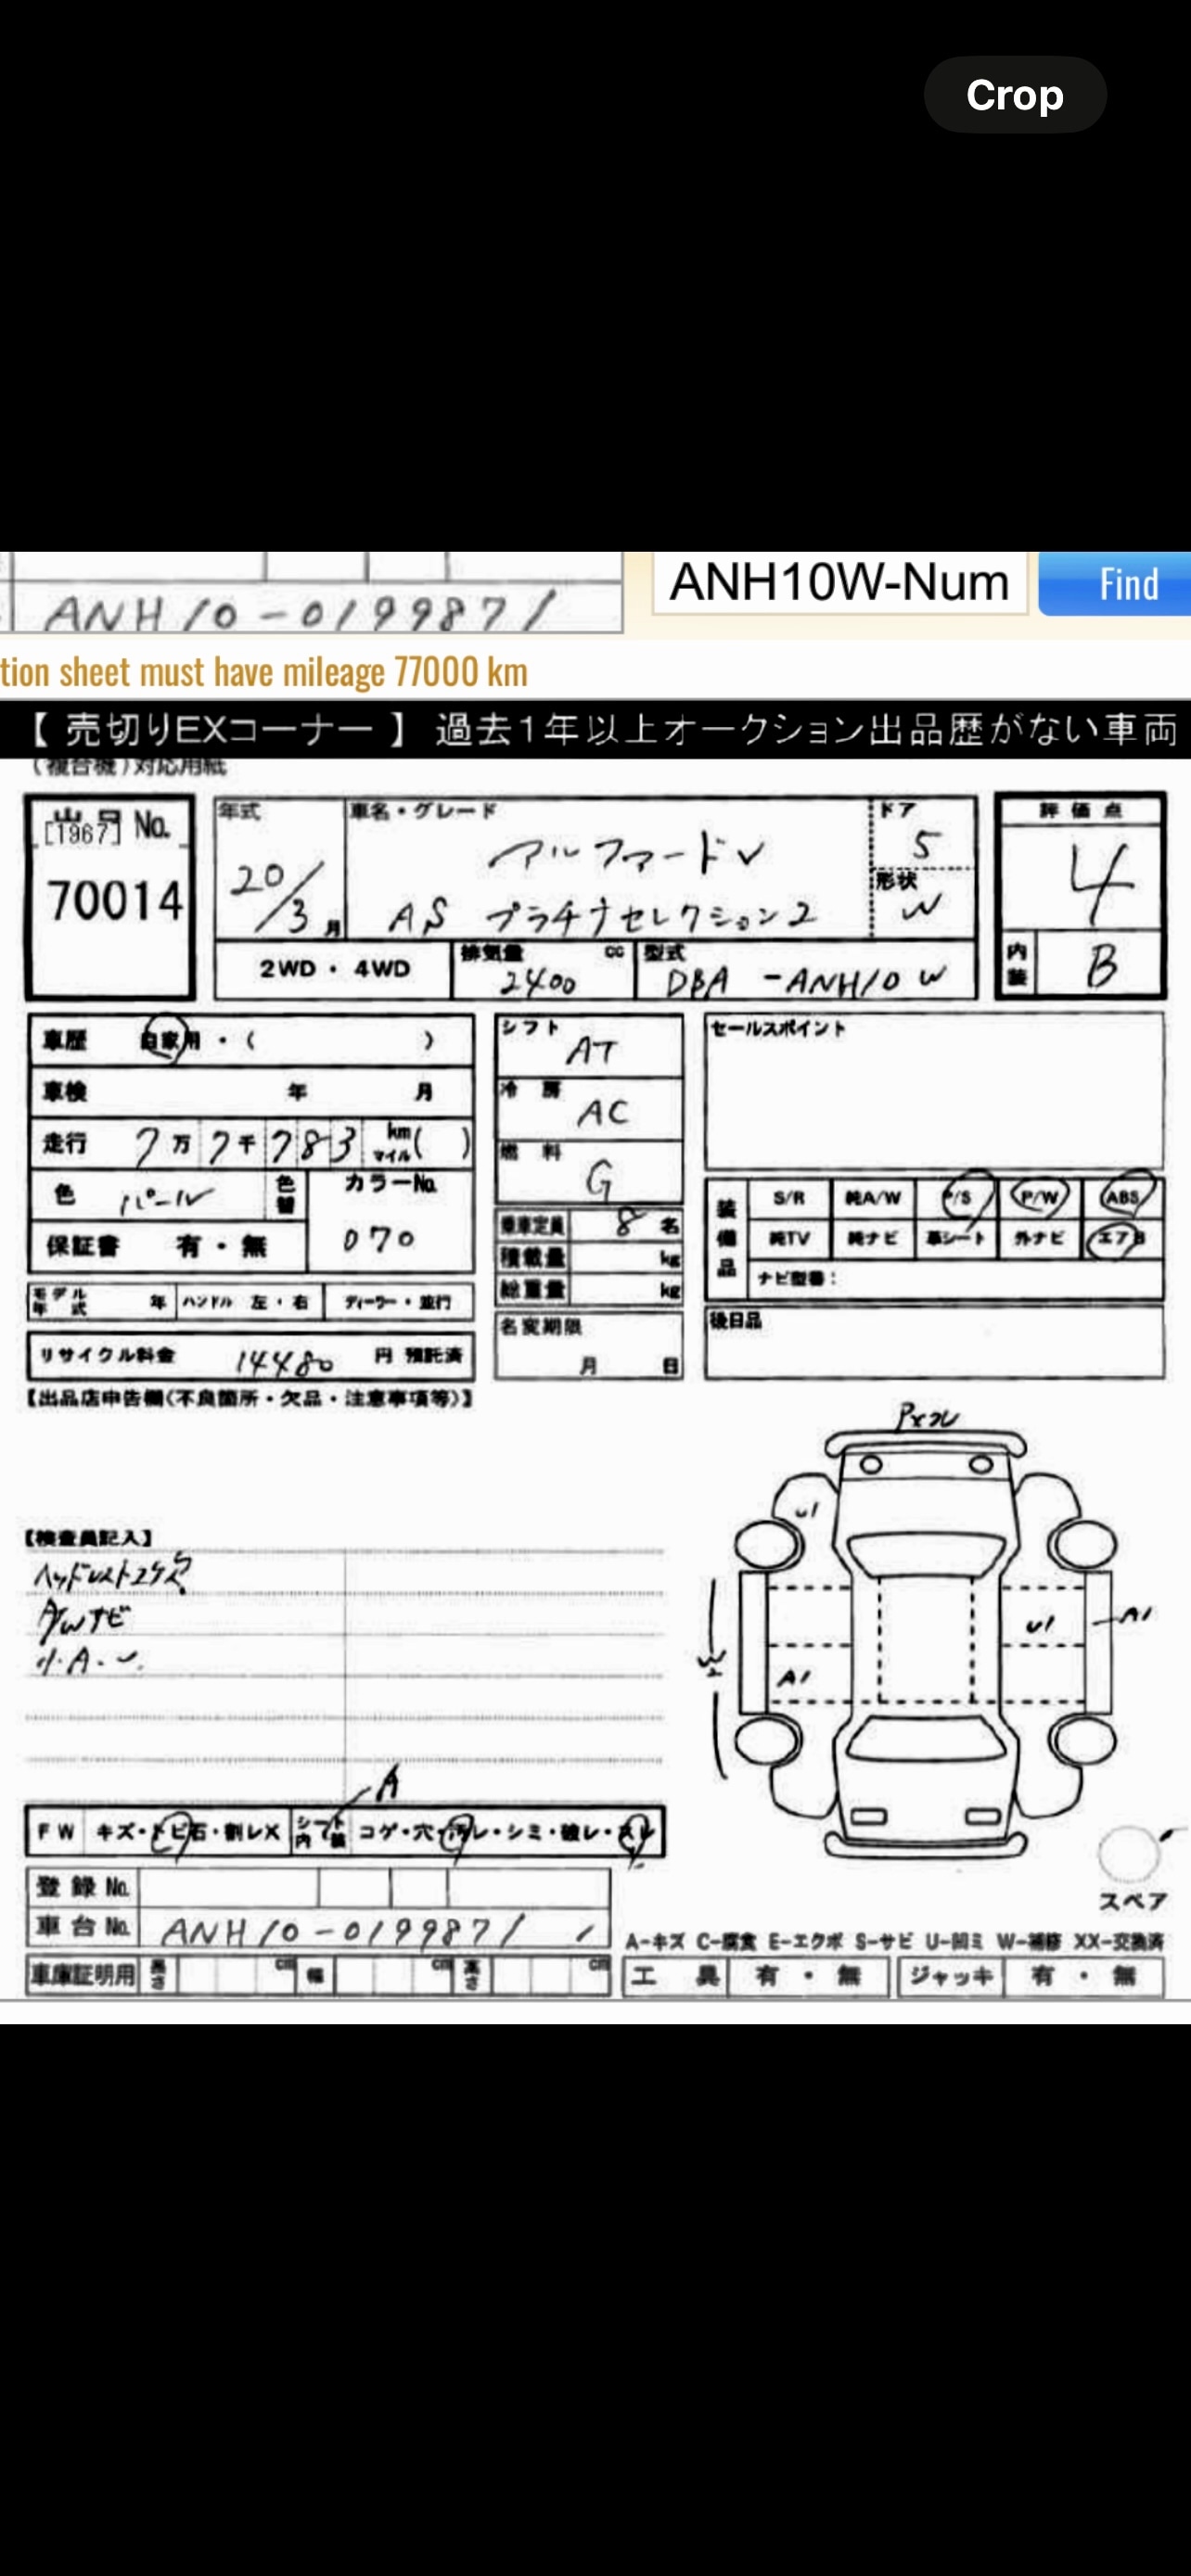 Crop
ANH10-0199871
ANH10W-Num
Find
tion sheet must have mileage 77000 km
【 売切りEXコーナー 】 過去1年以上オークション出品歴がない車両
(複合機)対応用紙
出品 No.
[1967]
70014
年式
20/3月
車名・グレード
アルファードV
AS プラチナセレクション2
ドア
5
形状
W
評価点
4
内装
B
2WD・4WD
排気量 cc
2400
型式
DBA-ANH10W
車歴 自家用・( )
車検 年 月
走行 7万7千783 km マイル( )
色 パール
色替
カラーNo.
070
保証書 有・無
モデル年式 年 ハンドル 左・右 ディーラー・並行
リサイクル料金 14480 円 預託済
シフト
AT
冷房
AC
燃料
G
乗車定員 8 名
積載量 kg
総重量 kg
名変期限
月 日
セールスポイント
装備品
S/R 純A/W P/S P/W ABS
純TV 純ナビ 革シート 外ナビ エアB
ナビ型番:
後日品
【出品店申告欄(不良箇所・欠品・注意事項等)】
【検査員記入】
A/Wナビ
U1
U1
A1
A1
W2
A
FW キズ・トビ石・割レX シート内装 コゲ・穴・汚レ・シミ・破レ・スレ
登録No.
車台No. ANH10-0199871
車庫証明用 長さ cm 幅 cm 高さ cm
スペア
A-キズ C-腐食 E-エクボ S-サビ U-凹ミ W-補修 XX-交換済
工具 有・無 ジャッキ 有・無